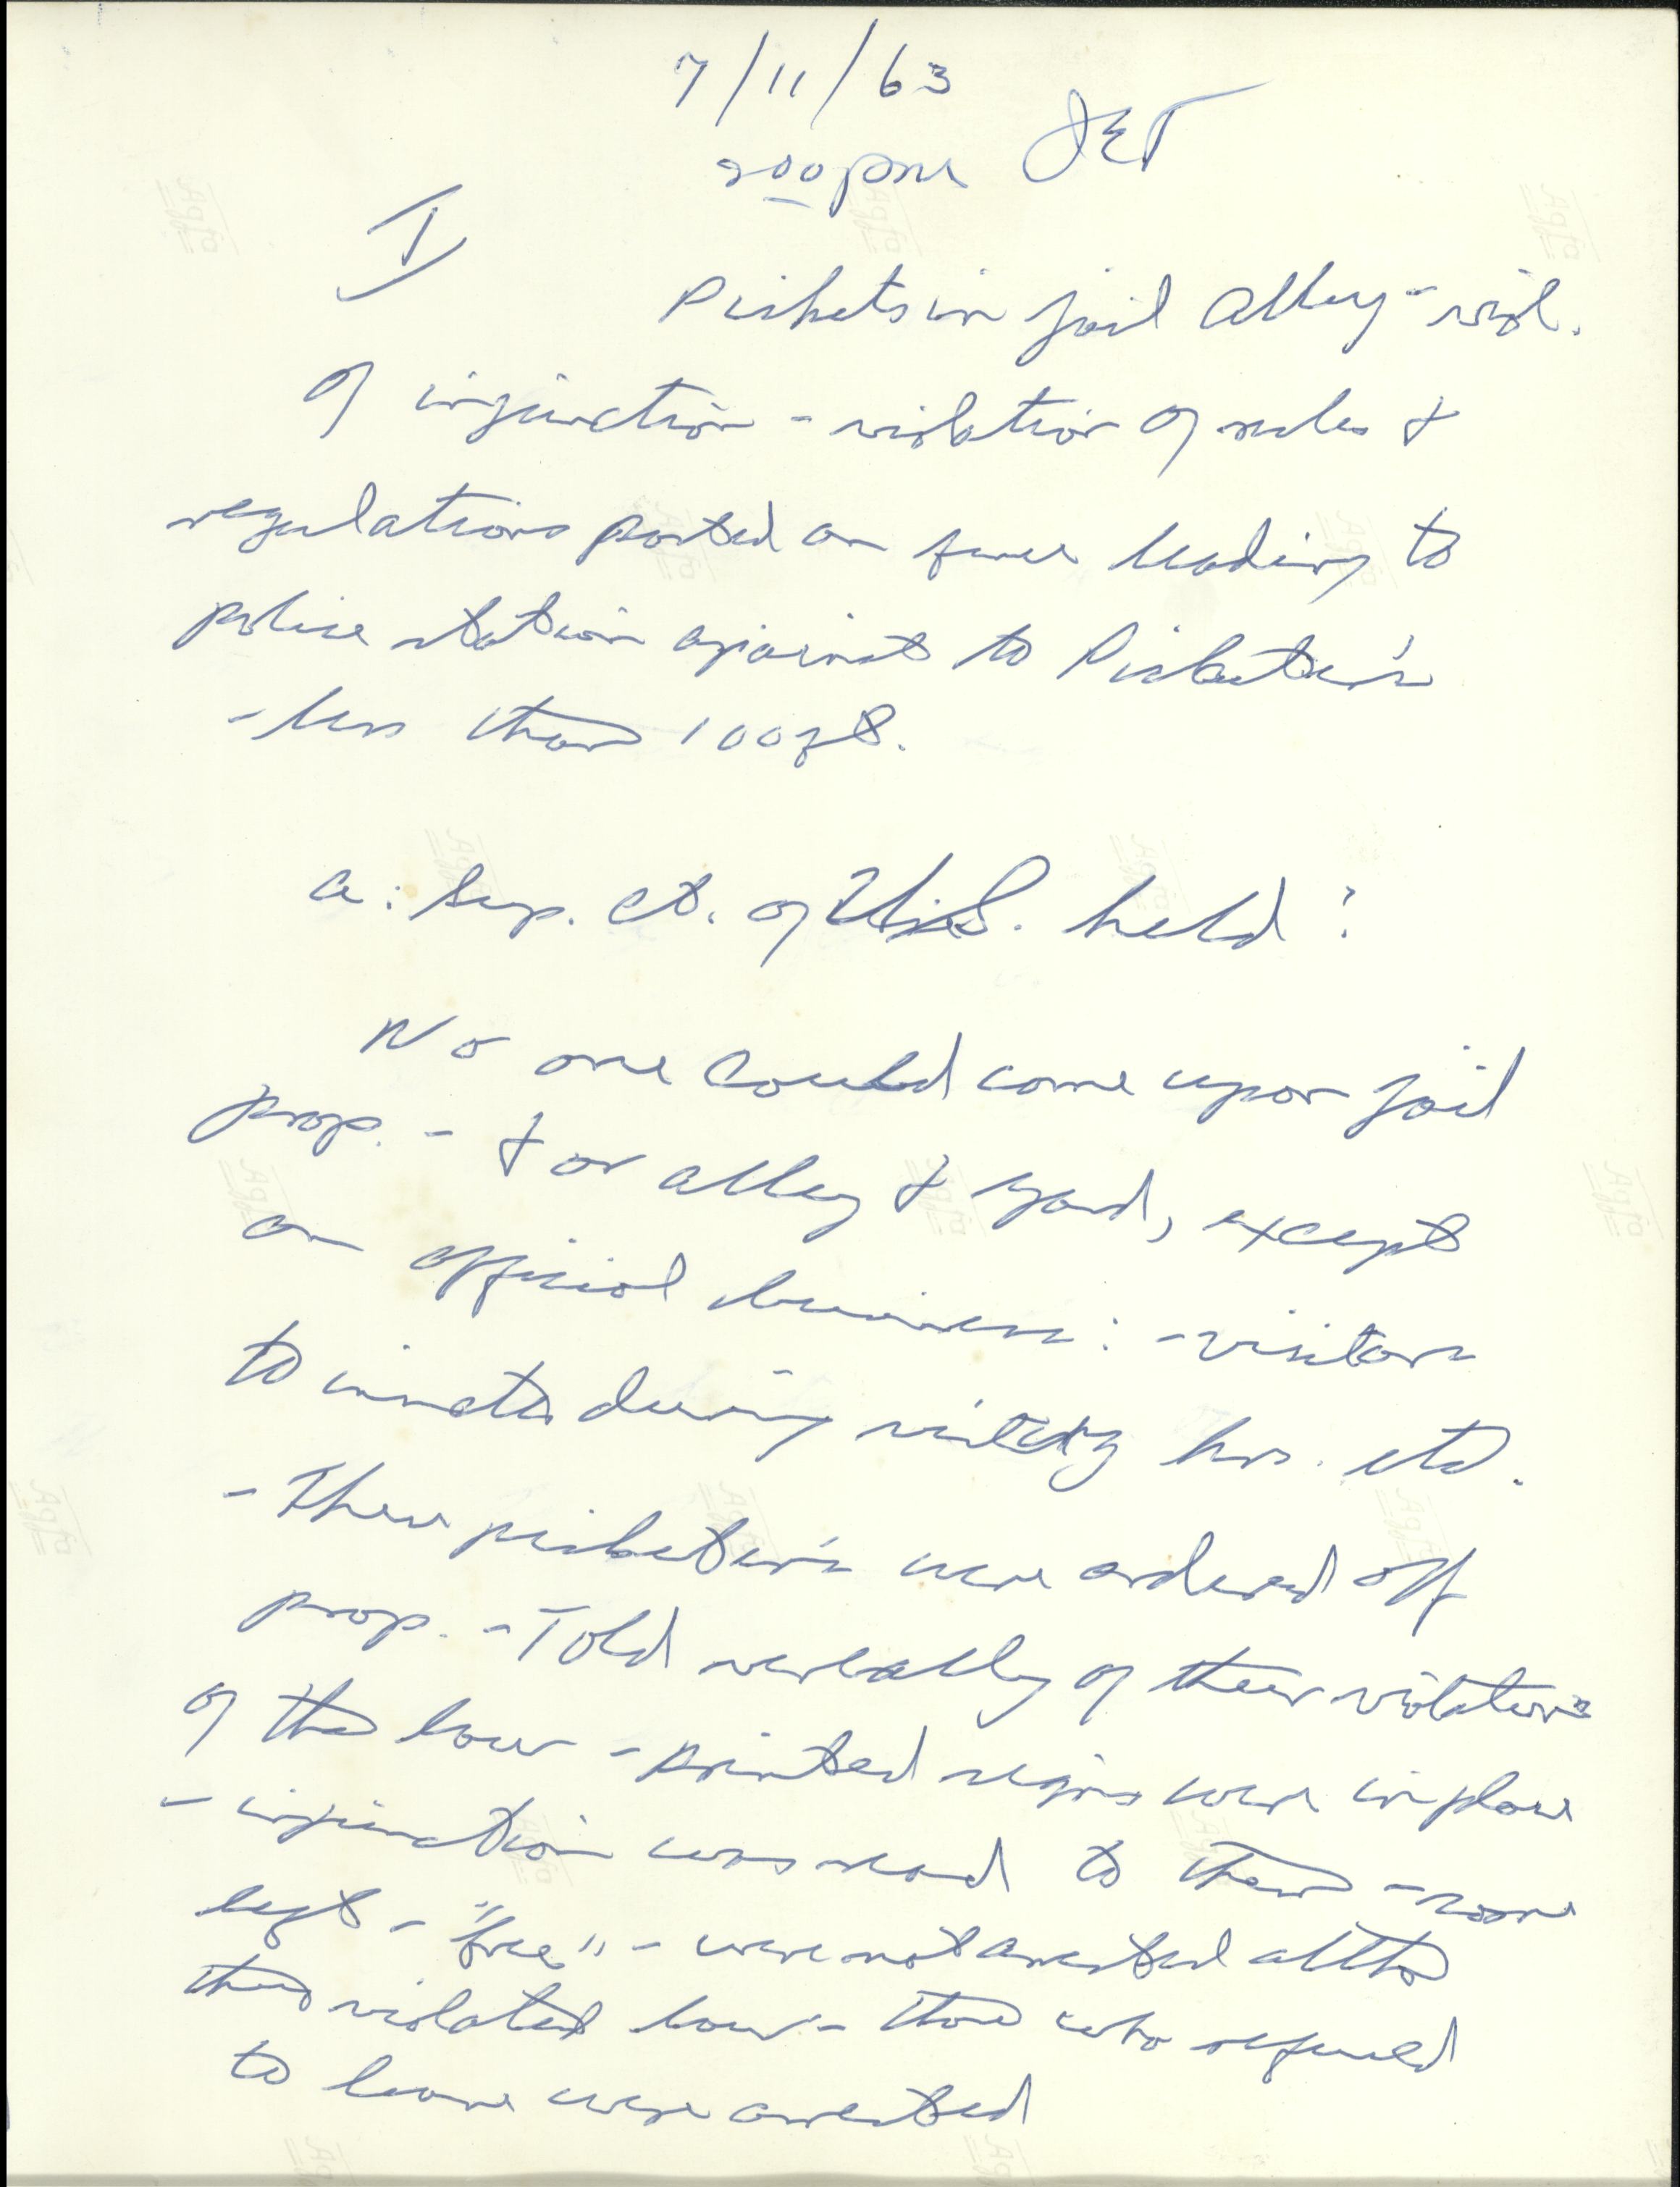 7/11/63
200 pm JET
I
Pickets in jail alley - viol.
of injunction - violation of rules &
regulations posted on fence leading to
police station against to Picketers
- less than 100 ft.
a: Sup. Ct. of U.S. held :
No one could come upon jail
prop. - & or alley & yard, except
on official business: - visitors
to inmates during visiting hrs. etc.
- These picketers were ordered off
prop. - Told verbally of their violations
of the law - printed signs were in place
- injunction was read to them - some
left - "free" - were not arrested altho
they violated law - those who refused
to leave were arrested